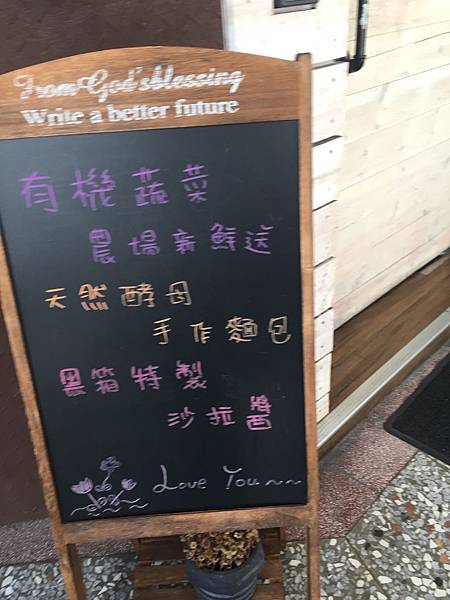 From God's blessing
Write a better future
有機蔬菜
農場新鮮送
天然酵母
手作麵包
黑箱特製
沙拉醬
Love You~~